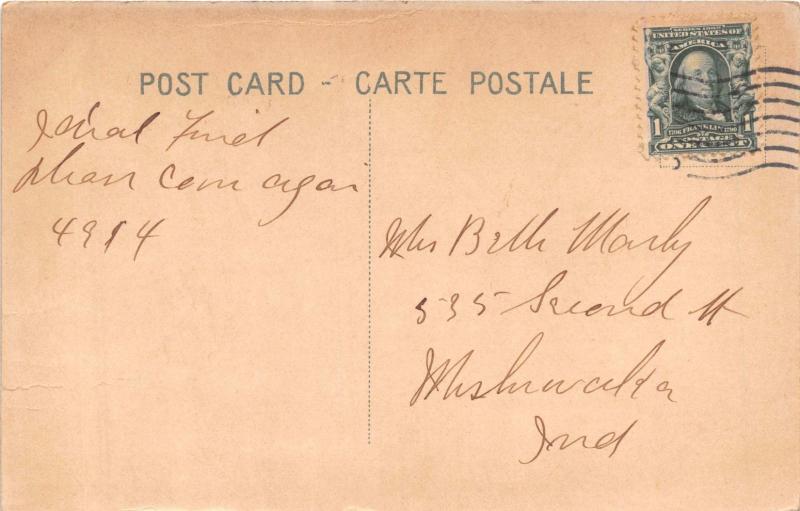 POST CARD - CARTE POSTALE
SERIES 1902
UNITED STATES OF
AMERICA
1 1706 FRANKLIN 1790 1
POSTAGE
ONE CENT
4914
Mrs Beth Marly
535 Second St
Mishawaka
Ind